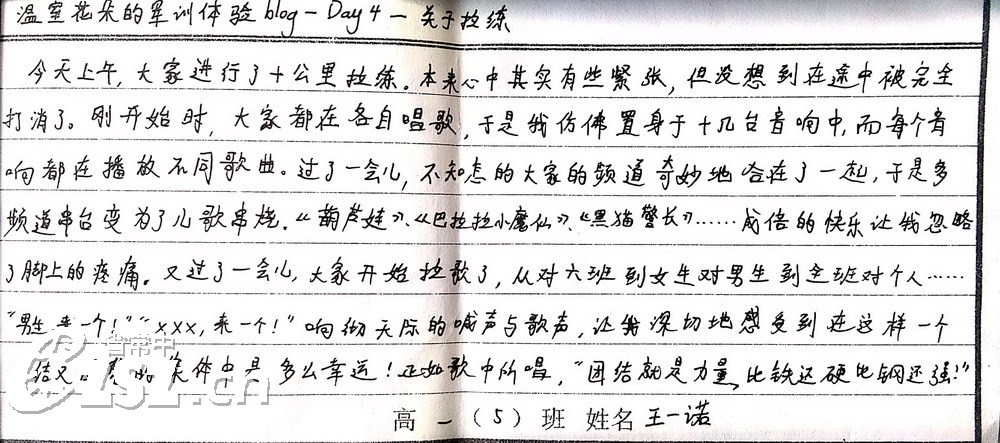 温室花朵的军训体验blog-Day4-关于拉练
今天上午,大家进行了十公里拉练。本来心中其实有些紧张,但没想到在途中被完全
打消了。刚开始时,大家都在各自唱歌,于是我仿佛置身于十几台音响中,而每个音
响都在播放不同歌曲。过了一会儿,不知怎的大家的频道奇妙地合在了一起,于是多
频道串台变为了儿歌串烧。“葫芦娃”、《巴拉拉小魔仙》、《黑猫警长》……成倍的快乐让我忽略
了脚上的疼痛。又过了一会儿,大家开始拉歌了,从对六班到女生对男生到全班对个人……
“男生来一个!”“xxx,来一个!”响彻天际的喊声与歌声,让我深切地感受到在这样一个
结又 集体中是多么幸运!正如歌中所唱,“团结就是力量,比铁还硬比钢还强!”
高一(5)班 姓名 王一诺
省常中